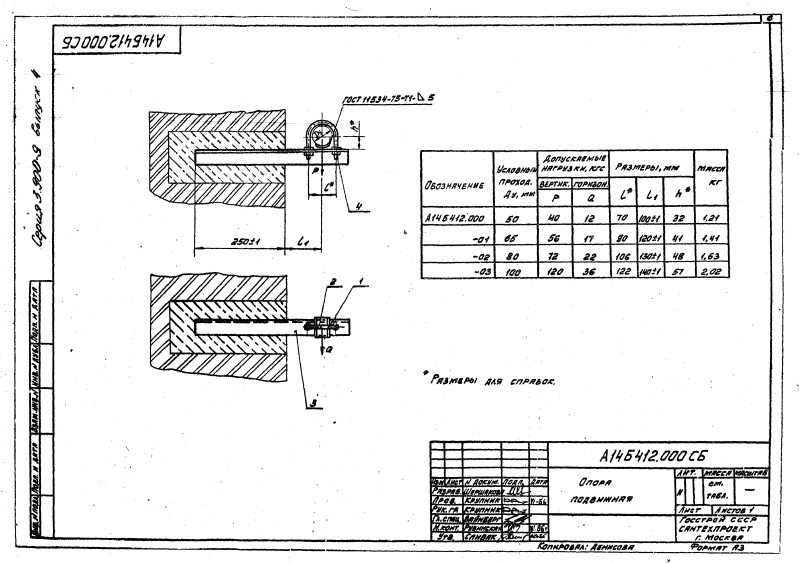 6
А14Б412.000 СБ
Серия 3.900-9 выпуск 4
ГОСТ 11534-75-Т1-△ 5
h*
P
L*
4
250±1
L1
2
1
Q
3
ОБОЗНАЧЕНИЕ УСЛОВНЫЙ ПРОХОД. Ду, мм ДОПУСКАЕМЫЕ НАГРУЗКИ, КГС РАЗМЕРЫ, ММ МАССА КГ
ВЕРТИК. ГОРИЗОН.
P Q L* L1 h*
А14Б412.000 50 40 12 70 100±1 32 1,21
-01 65 56 17 90 120±1 41 1,41
-02 80 72 22 106 130±1 48 1,63
-03 100 120 36 122 140±1 57 2,02
* РАЗМЕРЫ ДЛЯ СПРАВОК.
ПОДП. И ДАТА
ИНВ. № ДУБЛ.
ВЗАМ. ИНВ. №
ПОДП. И ДАТА
А14Б412.000 СБ
ИЗМ. ЛИСТ № ДОКУМ. ПОДП. ДАТА
РАЗРАБ.
ПРОВ. КРУПНИК
РУК. ГР. КРУПНИК
ГЛ. СПЕЦ. ВАЙНБЕРГ
Н. КОНТ.
УТВ. СПИВАК
ОПОРА
ПОДВИЖНАЯ
ЛИТ. МАССА МАСШТАБ
И СМ. ТАБЛ. —
ЛИСТ ЛИСТОВ 1
ГОССТРОЙ СССР
САНТЕХПРОЕКТ
Г. МОСКВА
КОПИРОВАЛ: ДЕНИСОВА ФОРМАТ А3